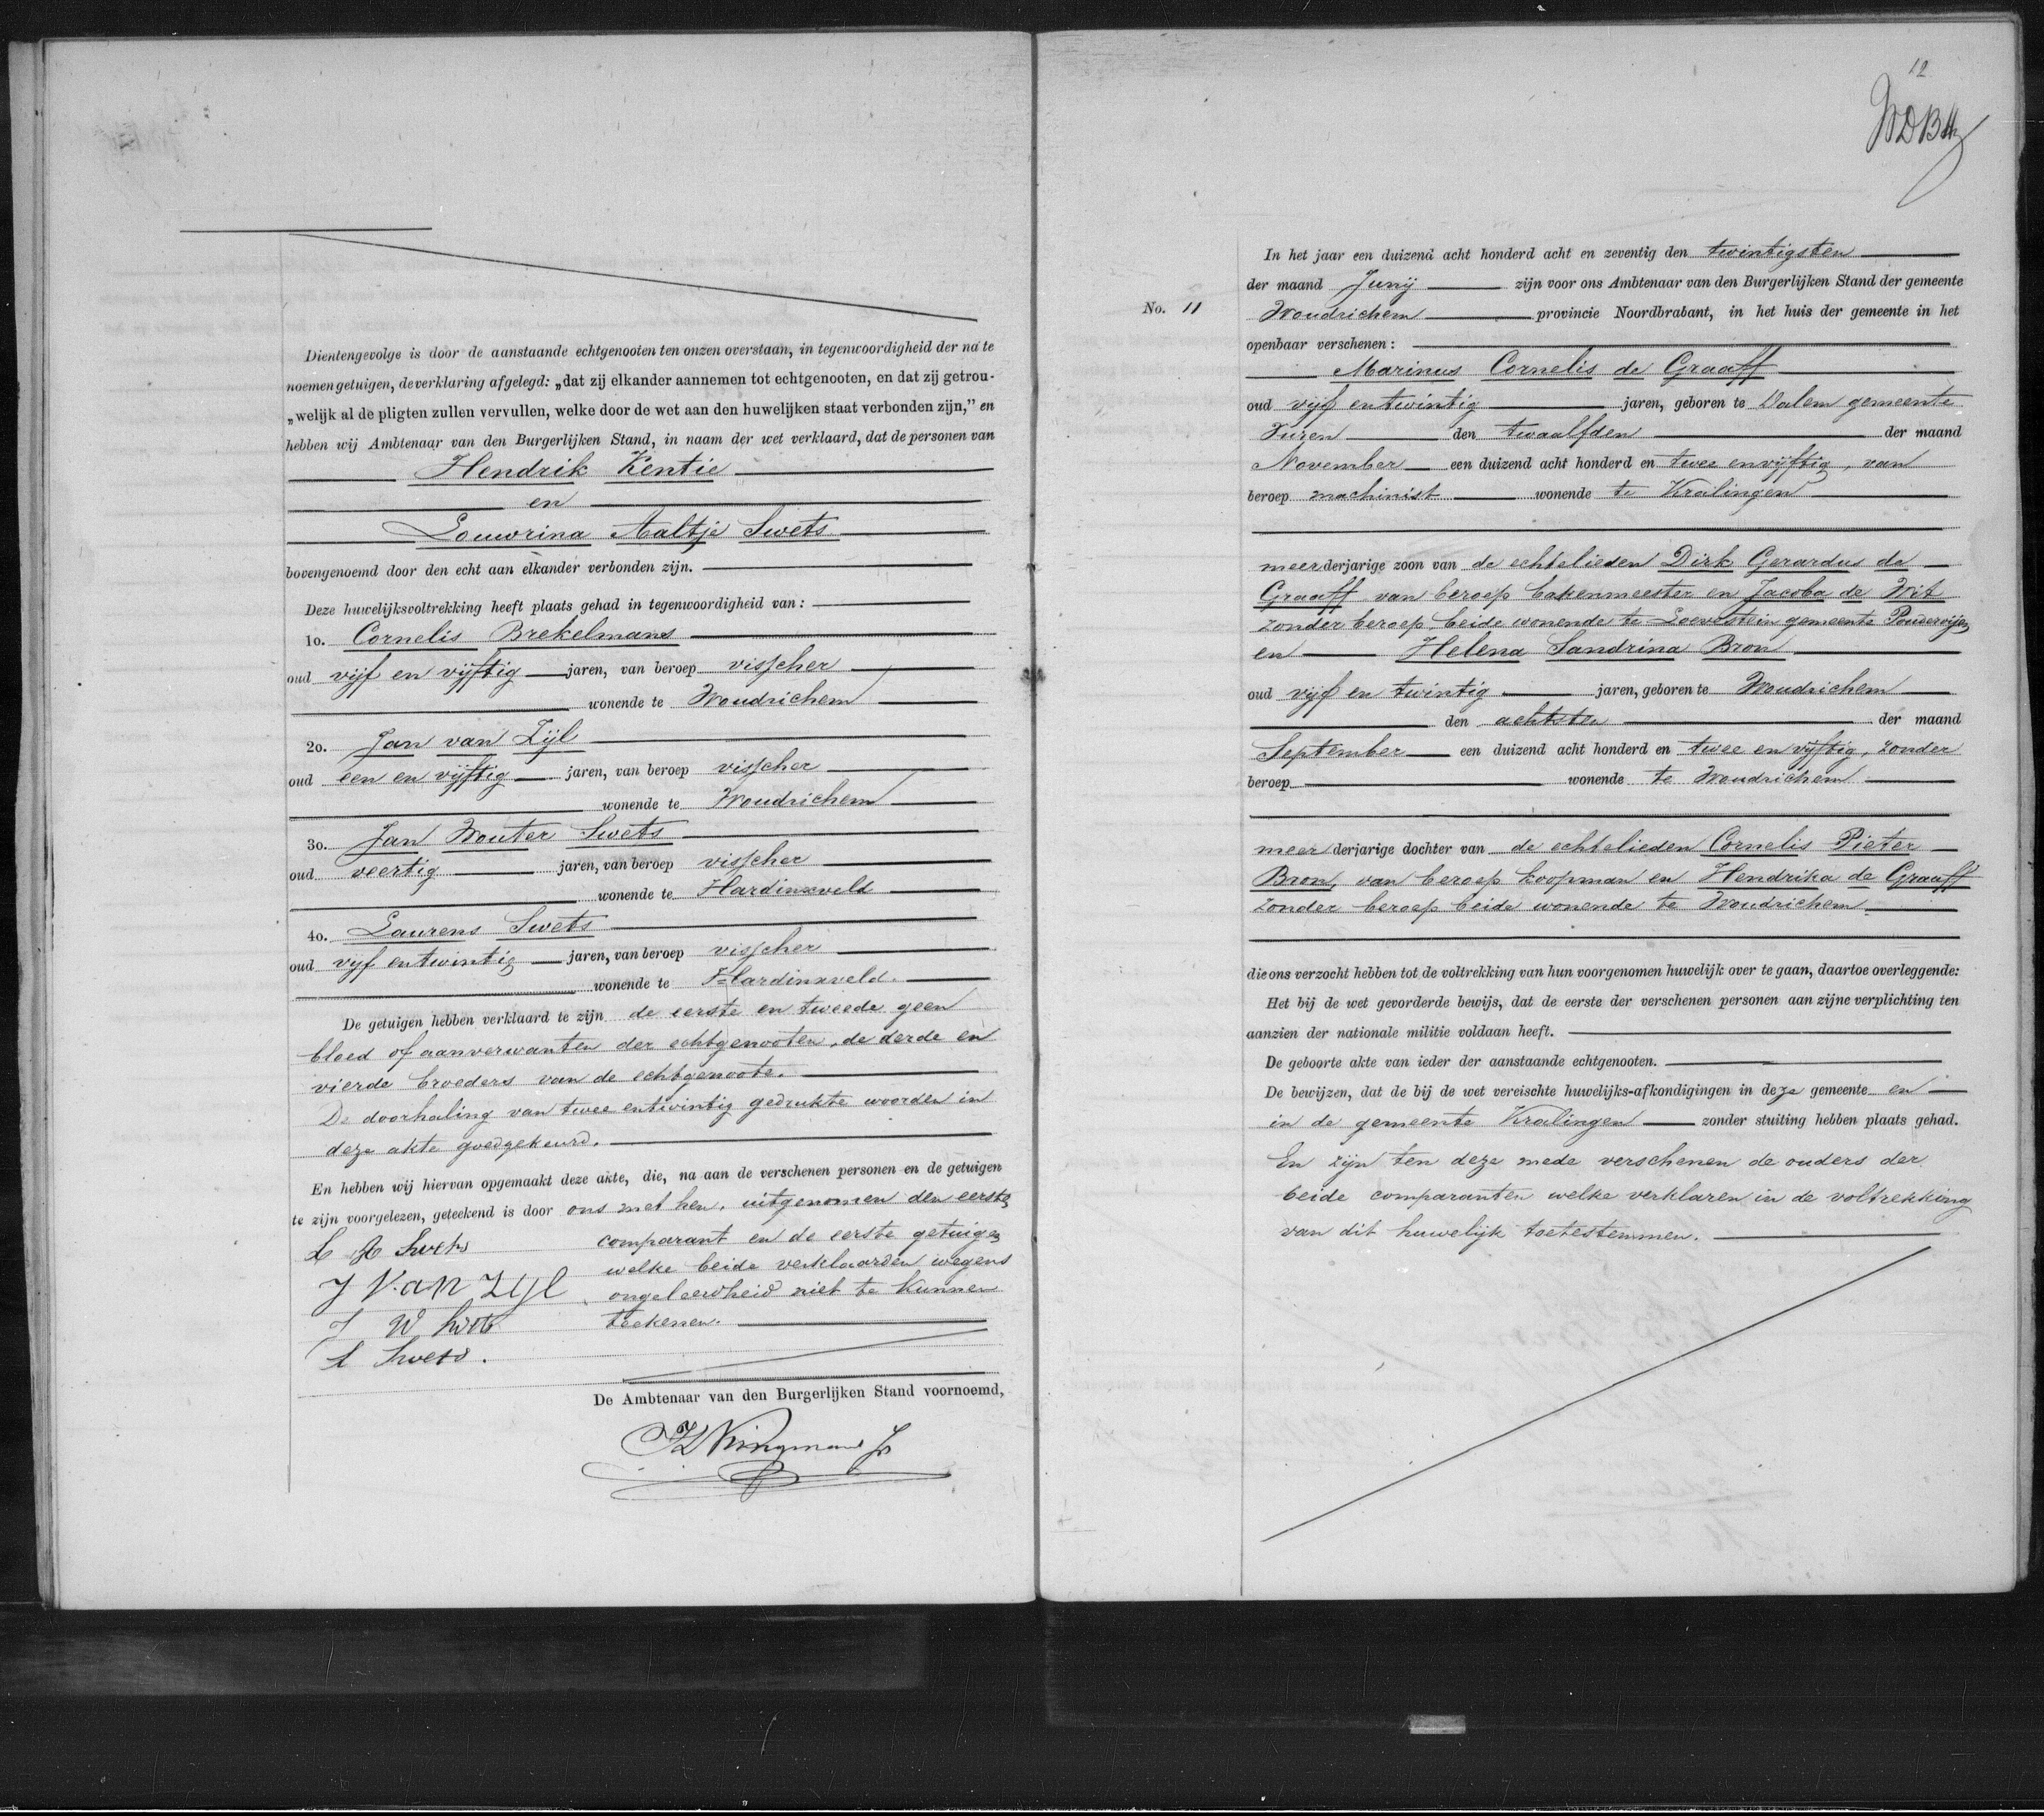 Dientengevolge is door de aanstaande echtgenooten ten onzen overstaan, in tegenwoordigheid der na te
noemen getuigen, de verklaring afgelegd: „dat zij elkander aannemen tot echtgenooten, en dat zij getrou-
„welijk al de pligten zullen vervullen, welke door de wet aan den huwelijken staat verbonden zijn,” en
hebben wij Ambtenaar van den Burgerlijken Stand, in naam der wet verklaard, dat de personen van
Hendrik Kentie
en
Louwrina Aaltje Swets
bovengenoemd door den echt aan elkander verbonden zijn.
Deze huwelijksvoltrekking heeft plaats gehad in tegenwoordigheid van:
1o. Cornelis Brekelmans
oud vijf en vijftig jaren, van beroep visscher
wonende te Woudrichem
2o. Jan van Zijl
oud een en vijftig jaren, van beroep visscher
wonende te Woudrichem
3o. Jan Wouter Swets
oud veertig jaren, van beroep visscher
wonende te Hardinxveld
4o. Laurens Swets
oud vijf en twintig jaren, van beroep visscher
wonende te Hardinxveld.
De getuigen hebben verklaard te zijn de eerste en tweede geen
bloed of aanverwanten der echtgenooten, de derde en
vierde broeders van de echtgenoote.
De doorhaling van twee en twintig gedrukte woorden in
deze akte goedgekeurd.
En hebben wij hiervan opgemaakt deze akte, die, na aan de verschenen personen en de getuigen
te zijn voorgelezen, geteekend is door ons met hen, uitgenomen den eerste
comparant en de eerste getuige,
welke beide verklaarden wegens
ongeleerdheid niet te kunnen
teekenen.
L A Swets
J Van Zijl
J W Swets
L Swets.
De Ambtenaar van den Burgerlijken Stand voornoemd,
12
No. 11
In het jaar een duizend acht honderd acht en zeventig den twintigsten
der maand Junij zijn voor ons Ambtenaar van den Burgerlijken Stand der gemeente
Woudrichem provincie Noordbrabant, in het huis der gemeente in het
openbaar verschenen:
Marinus Cornelis de Graaff
oud vijf en twintig jaren, geboren te Dalem gemeente
Vuren den twaalfden der maand
November een duizend acht honderd en twee en vijftig, van
beroep machinist wonende te Kralingen
meerderjarige zoon van de echtelieden Dirk Gerardus de
Graaff van beroep bakenmeester en Jacoba de Wit
zonder beroep, beide wonende te Loevestein gemeente Poederoijen
en Helena Sandrina Bron
oud vijf en twintig jaren, geboren te Woudrichem
den achtsten der maand
September een duizend acht honderd en twee en vijftig, zonder
beroep wonende te Woudrichem
meerderjarige dochter van de echtelieden Cornelis Pieter
Bron, van beroep koopman en Hendrika de Graaff
zonder beroep beide wonende te Woudrichem
die ons verzocht hebben tot de voltrekking van hun voorgenomen huwelijk over te gaan, daartoe overleggende:
Het bij de wet gevorderde bewijs, dat de eerste der verschenen personen aan zijne verplichting ten
aanzien der nationale militie voldaan heeft.
De geboorte akte van ieder der aanstaande echtgenooten.
De bewijzen, dat de bij de wet vereischte huwelijks-afkondigingen in deze gemeente en
in de gemeente Kralingen zonder stuiting hebben plaats gehad.
En zijn ten deze mede verschenen de ouders der
beide comparanten welke verklaren in de voltrekking
van dit huwelijk toetestemmen.